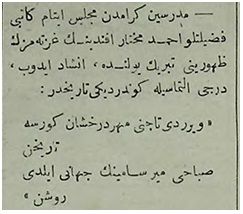 — مدرسین کرامدن مجلس ایتام کاتبی
فضیلتلو احمد مختار افندینك غزته مزك
ظهورینی تبریك یولنده ، انشاد ایدوب ،
درجی التماسیله کوندردیکی تاریخدر :
« ویردی تاجنی مهر درخشان کورسه
تاریخن
صباحی میر سامینك جهانی ایلدی
روشن »